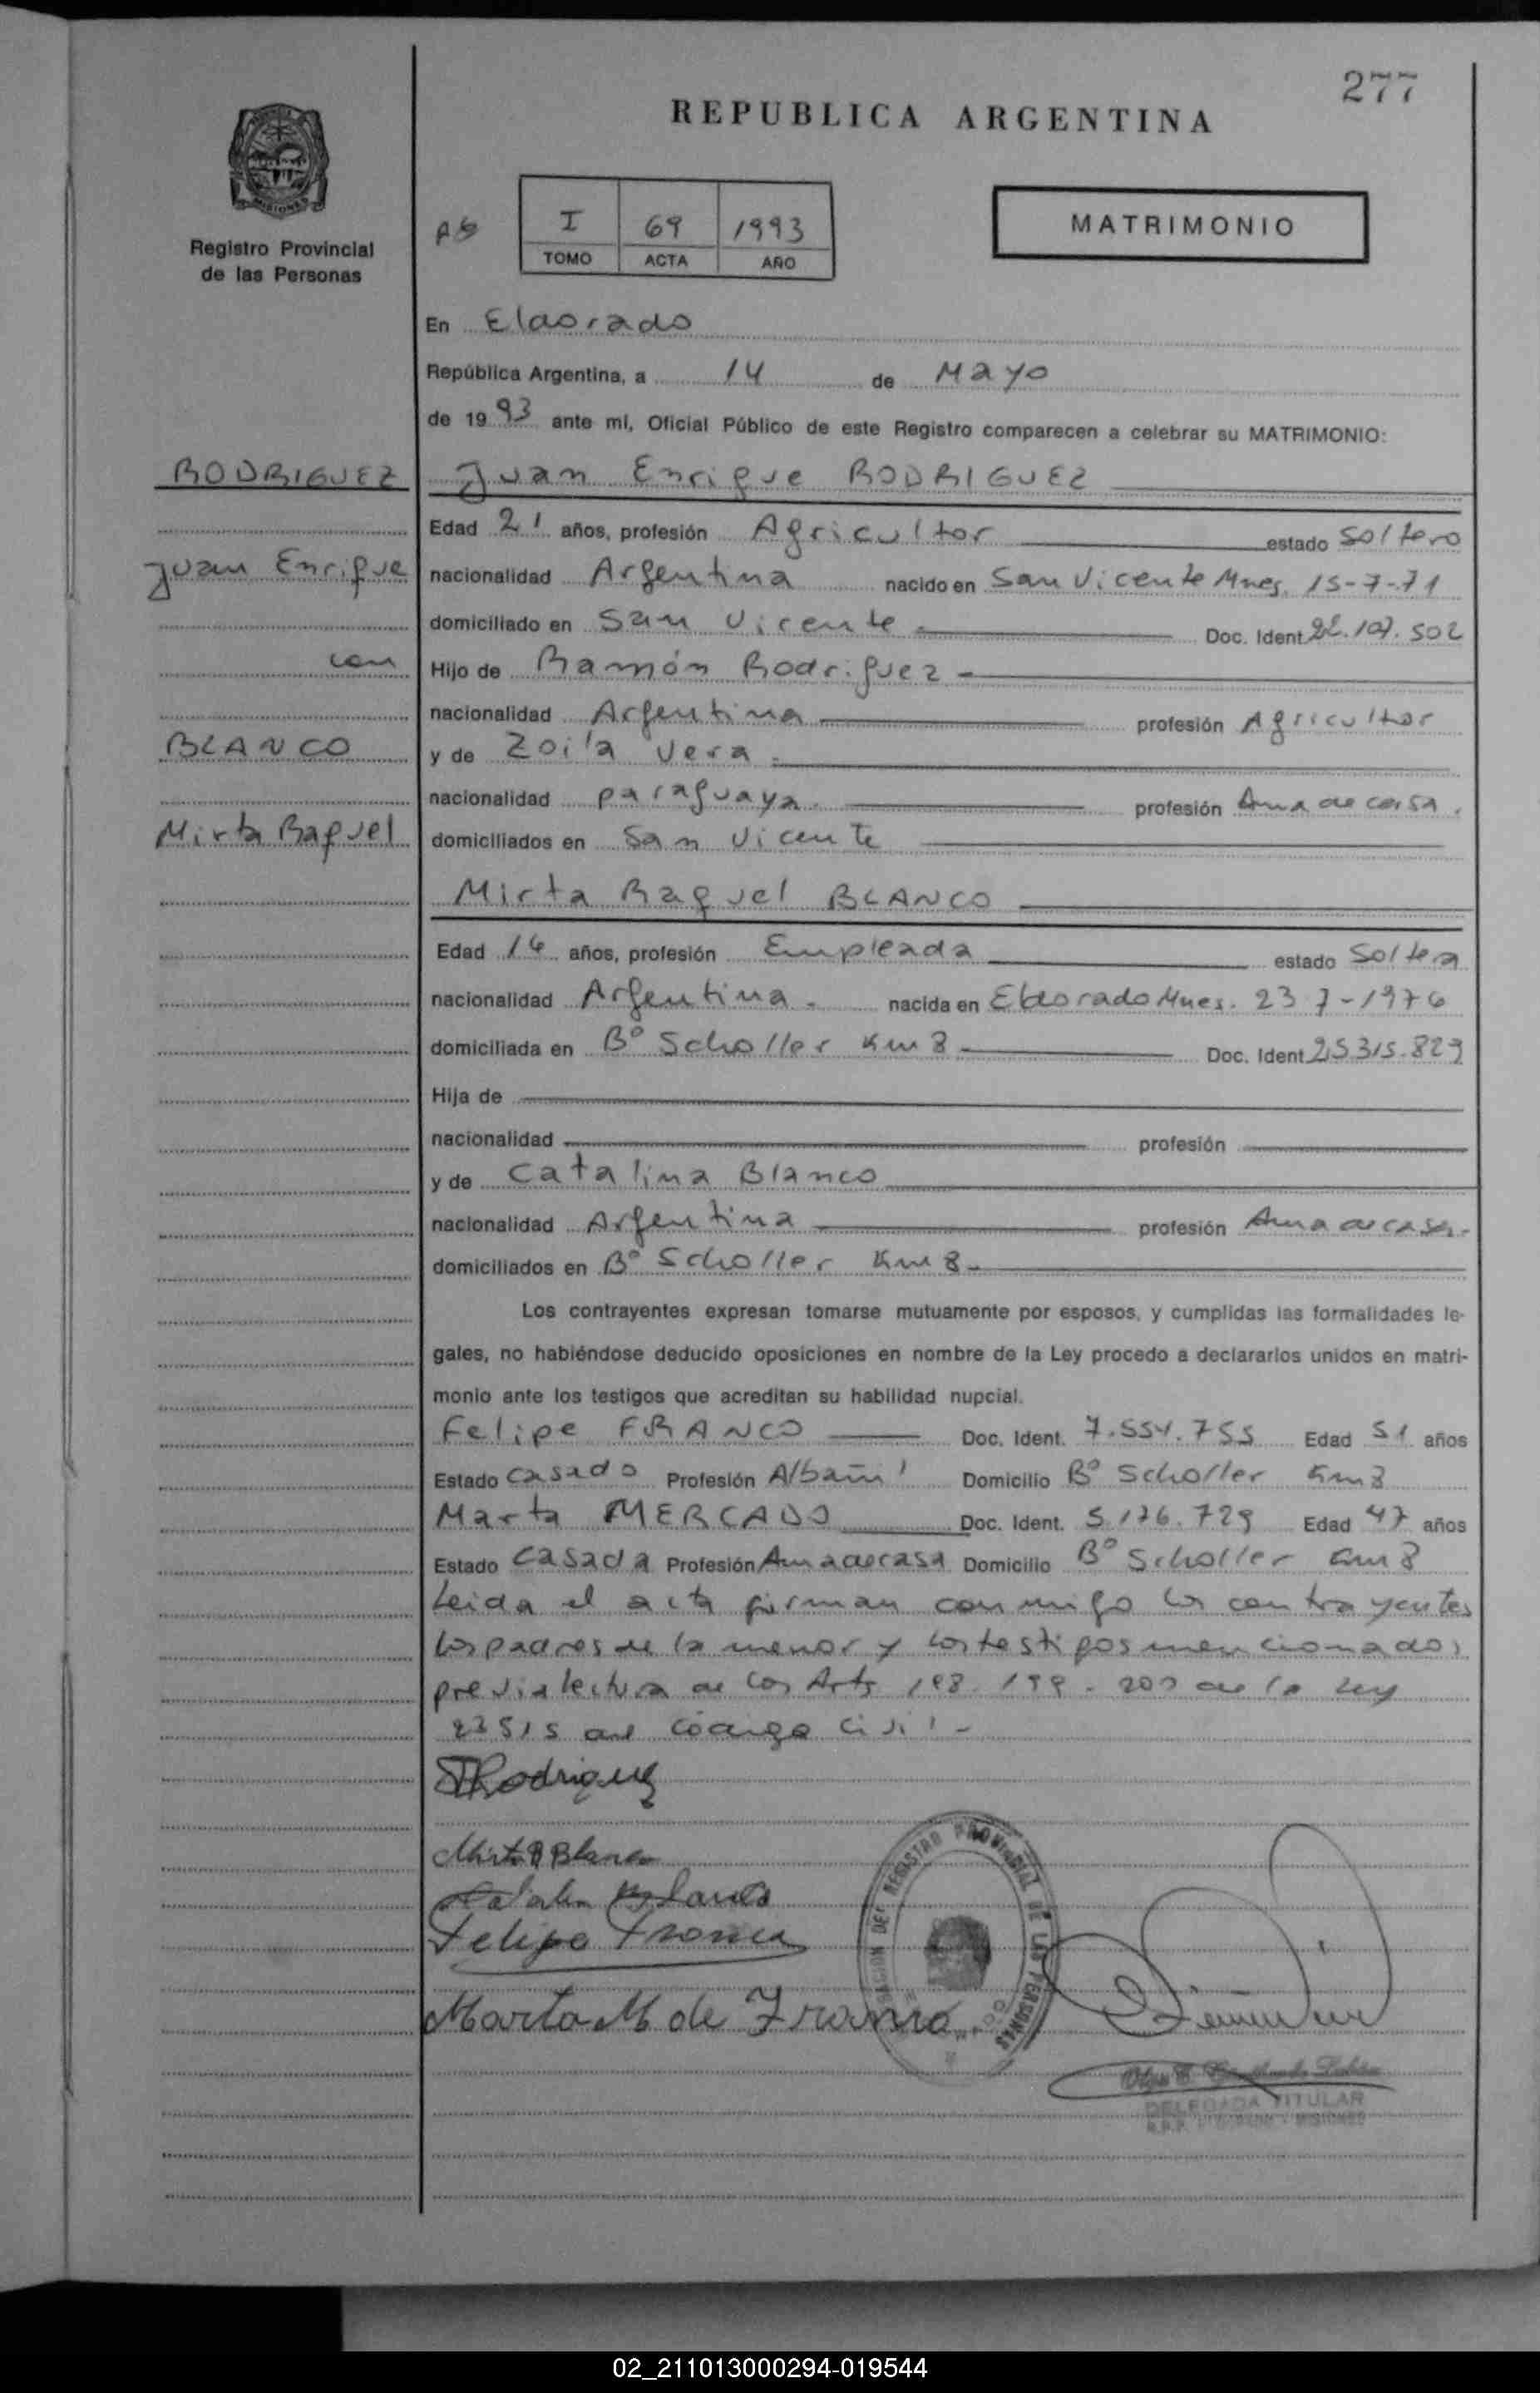 277
REPUBLICA ARGENTINA
MISIONES
Registro Provincial
de las Personas
I 69 1993
TOMO ACTA AÑO
MATRIMONIO
En Eldorado
República Argentina, a 14 de Mayo
de 1993 ante mí, Oficial Público de este Registro comparecen a celebrar su MATRIMONIO:
RODRIGUEZ
Juan Enrique RODRIGUEZ
Edad 21 años, profesión Agricultor estado Soltero
Juan Enrique
nacionalidad Argentina nacido en San Vicente Mnes. 15-7-71
domiciliado en San Vicente Doc. Ident. 22.107.502
con
Hijo de Ramón Rodriguez
nacionalidad Argentina profesión Agricultor
BLANCO
y de Zoila Vera
nacionalidad paraguaya. profesión Ama de casa.
Mirta Raquel
domiciliados en San Vicente
Mirta Raquel BLANCO
Edad 16 años, profesión Empleada estado Soltera
nacionalidad Argentina. nacida en Eldorado Mnes. 23 7-1976
domiciliada en Bº Scholler Km 8 Doc. Ident. 25.315.829
Hija de
nacionalidad profesión
y de Catalina Blanco
nacionalidad Argentina profesión Ama de casa.
domiciliados en Bº Scholler Km 8.
Los contrayentes expresan tomarse mutuamente por esposos, y cumplidas las formalidades le-
gales, no habiéndose deducido oposiciones en nombre de la Ley procedo a declararlos unidos en matri-
monio ante los testigos que acreditan su habilidad nupcial.
Felipe FRANCO Doc. Ident. 7.554.755 Edad 51 años
Estado Casado Profesión Albañil Domicilio Bº Scholler Km 8
Marta MERCADO Doc. Ident. 5.176.729 Edad 47 años
Estado Casada Profesión Ama de casa Domicilio Bº Scholler Km 8
Leida el acta firman conmigo los contrayentes
los padres de la menor y los testigos mencionados
previa lectura de los Arts 198. 199. 200 de la Ley
23515 del código Civil -
Rodriguez
Mirta R Blanco
Catalina Blanco
Felipe Franco
Marta M de Franco
DEL REGISTRO PROVINCIAL DE LAS PERSONAS
DELEGADA TITULAR
R.P.P. ELDORADO - MISIONES
02_211013000294-019544